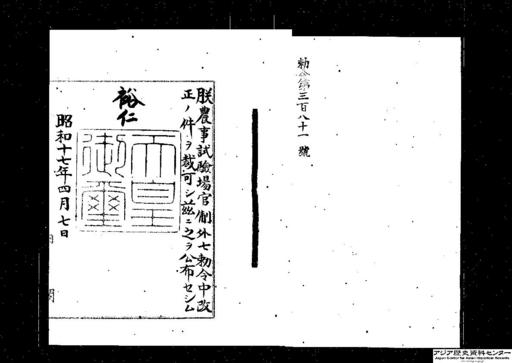 勅令第三百八十一號
朕農事試驗場官制外七勅令中改
正ノ件ヲ裁可シ茲ニ之ヲ公布セシム
裕仁
天皇御璽
昭和十七年四月七日
アジア歴史資料センター
Japan Center for Asian Historical Records